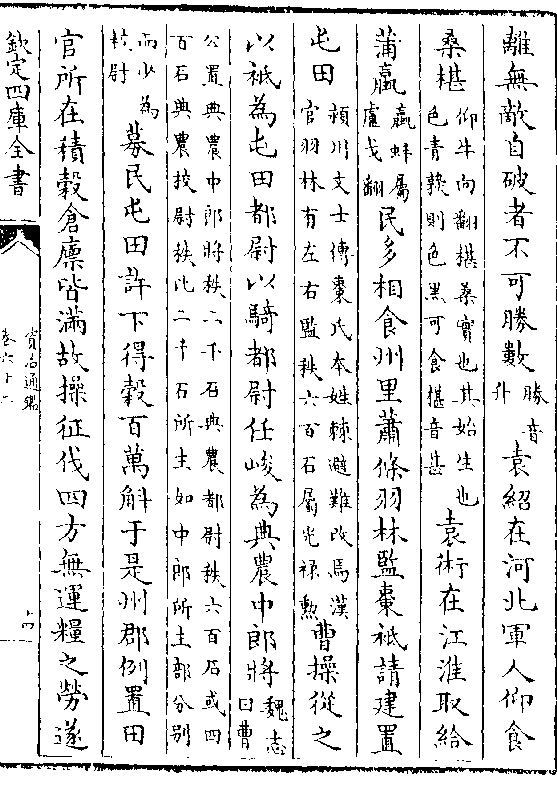 離無敵自破者不可勝數勝音升袁紹在河北軍人仰食
桑椹仰牛向翻椹桑實也其始生也色青熟則色黑可食椹音甚袁術在江淮取給
蒲蠃蠃蚌屬盧戈翻民多相食州里蕭條羽林監棗祗請建置
屯田潁川文士傳棗氏本姓棘避難改焉漢官羽林有左右監秩六百石屬光祿勲曹操從之
以祗為屯田都尉以騎都尉任峻為典農中郎將魏志曰曹
公置典農中郎將秩二千石典農都尉秩六百石或四百石典農校尉秩比二千石所主如中郎所主部分别
而少為校尉募民屯田許下得穀百萬斛于是州郡例置田
官所在積穀倉廩皆滿故操征伐四方無運糧之勞遂
欽定四庫全書
資治通鑑
卷六十二
十四